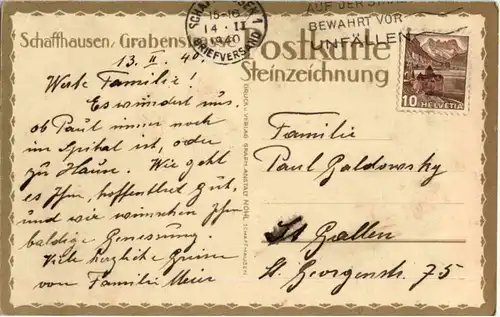 Schaffhausen/Grabenst
13. II. 40.
Werte Familie!
Es wundert uns,
ob Paul immer noch
im Spital ist, oder
zu Hause. Wie geht
es Ihm, hoffentlich gut,
und wir wünschen Ihm
baldige Genesung
Viele herzliche Grüsse
von Familie Meier
15-16
14·II
1940
BRIEFVERSAND
AUF DER STRA
BEWAHRT VOR
UNFÄLLEN
Postkarte
Steinzeichnung
10 HELVETIA
DRUCK u. VERLAG GRAPH. ANSTALT NOHL SCHAFFHAUSEN
Familie
Paul Galdowsky
St Gallen
St. Georgenstr. 75